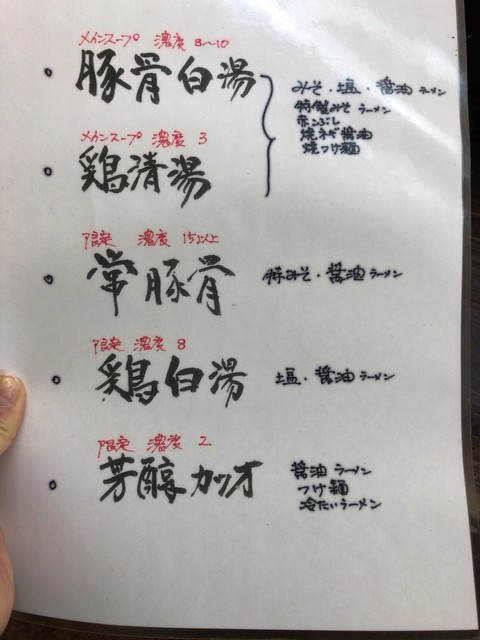 メインスープ 濃度 8〜10
豚骨白湯
みそ・塩・醤油ラーメン
特製みそラーメン
赤こぶし
焼ネギ醤油
焼つけ麺
メインスープ 濃度 3
鶏清湯
限定 濃度 15以上
常豚骨
豚みそ・醤油ラーメン
限定 濃度 8
鶏白湯
塩・醤油ラーメン
限定 濃度 2
芳醇カツオ
醤油ラーメン
つけ麺
冷たいラーメン